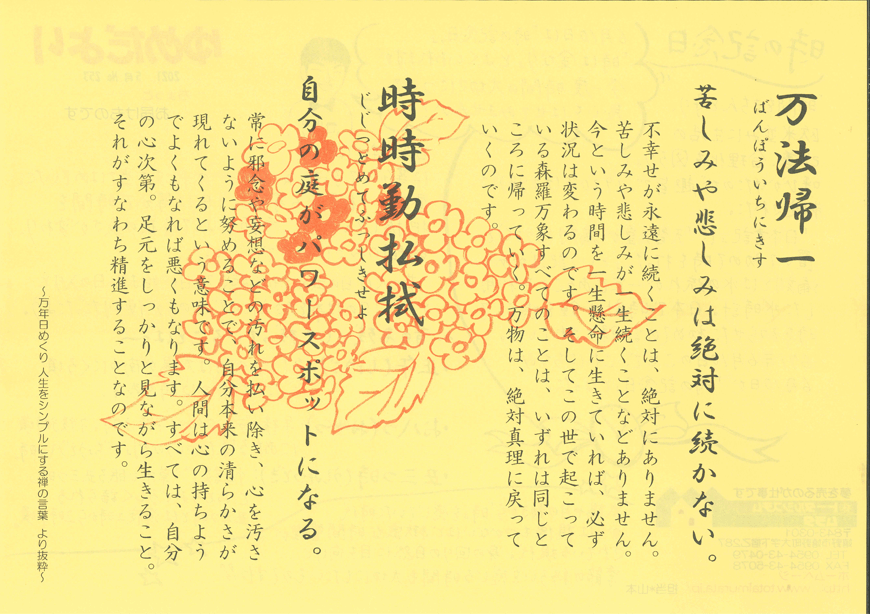 万法帰一
ばんぽういちにきす
苦しみや悲しみは絶対に続かない。
不幸せが永遠に続くことは、絶対にありません。
苦しみや悲しみが一生続くことなどありません。
今という時間を一生懸命に生きていれば、必ず
状況は変わるのです。そしてこの世で起こって
いる森羅万象すべてのことは、いずれは同じと
ころに帰っていく。万物は、絶対真理に戻って
いくのです。
時時勤払拭
じじつとめてふっしきせよ
自分の庭がパワースポットになる。
常に邪念や妄想などの汚れを払い除き、心を汚さ
ないように努めることで、自分本来の清らかさが
現れてくるという意味です。人間は心の持ちよう
でよくもなれば悪くもなります。すべては、自分
の心次第。足元をしっかりと見ながら生きること。
それがすなわち精進することなのです。
～万年日めくり 人生をシンプルにする禅の言葉 より抜粋～